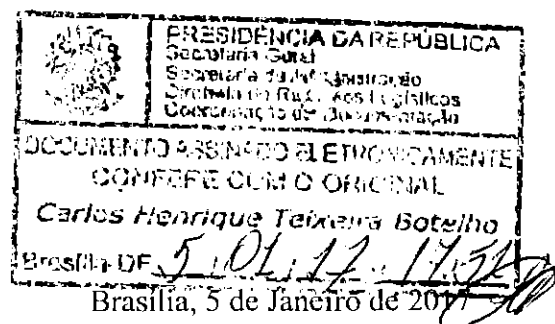 PRESIDÊNCIA DA REPÚBLICA
Secretaria Geral
Secretaria de Administração
Diretoria de Recursos Logísticos
Coordenação de Documentação
DOCUMENTO ASSINADO ELETRONICAMENTE
CONFERE COM O ORIGINAL
Carlos Henrique Teixeira Botelho
Brasília-DF 5 01 17
Brasília, 5 de Janeiro de 2017